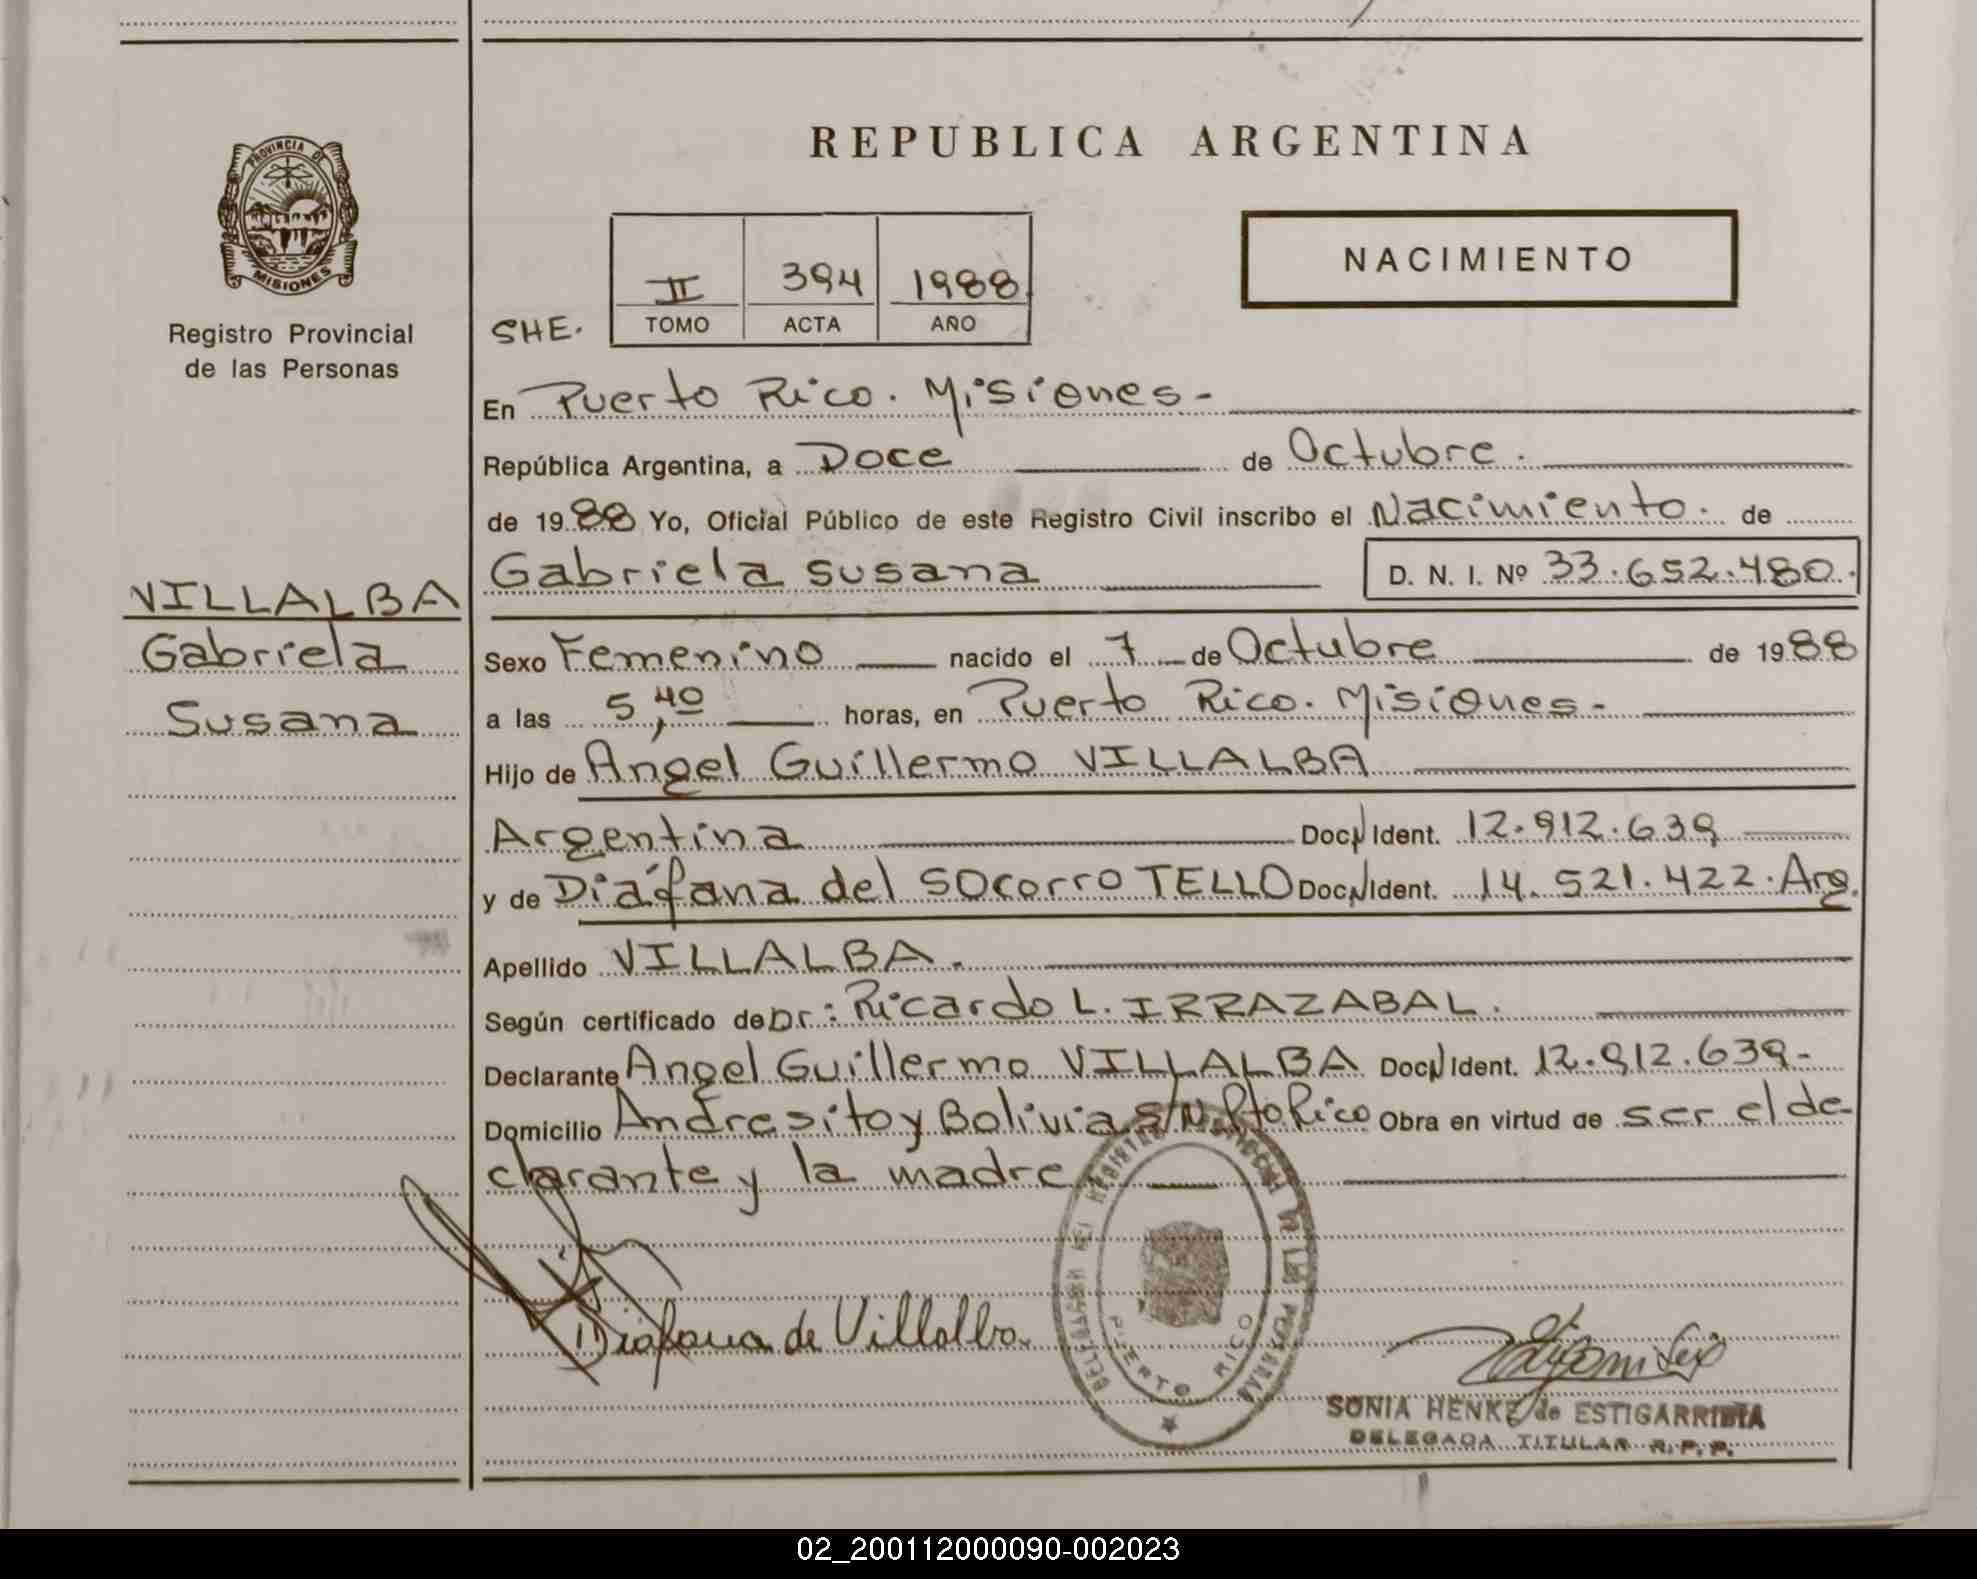 REPUBLICA ARGENTINA
PROVINCIA DE
MISIONES
Registro Provincial
de las Personas
NACIMIENTO
II 394 1988
TOMO ACTA AÑO
SHE.
En Puerto Rico. Misiones-
República Argentina, a Doce de Octubre.
de 1988 Yo, Oficial Público de este Registro Civil inscribo el Nacimiento. de
Gabriela Susana D. N. I. Nº 33.652.480.
VILLALBA
Gabriela
Susana
Sexo Femenino nacido el 7 de Octubre de 1988
a las 5,40 horas, en Puerto Rico. Misiones-
Hijo de Angel Guillermo VILLALBA
Argentina Doc. N Ident. 12.912.639
y de Diáfana del SOcorro TELLO Doc. N Ident. 14.521.422. Arg.
Apellido VILLALBA.
Según certificado de Dr: Ricardo L. IRRAZABAL.
Declarante Angel Guillermo VILLALBA Doc. N Ident. 12.912.639-
Domicilio Andresito y Bolivia S/N Pto Rico Obra en virtud de ser el de-
clarante y la madre
Diafana de Villalba.
DELEGACION DEL REGISTRO PROVINCIAL DE LAS PERSONAS
PUERTO RICO
SONIA HENKE de ESTIGARRIBIA
DELEGADA TITULAR R. P. P.
02_200112000090-002023